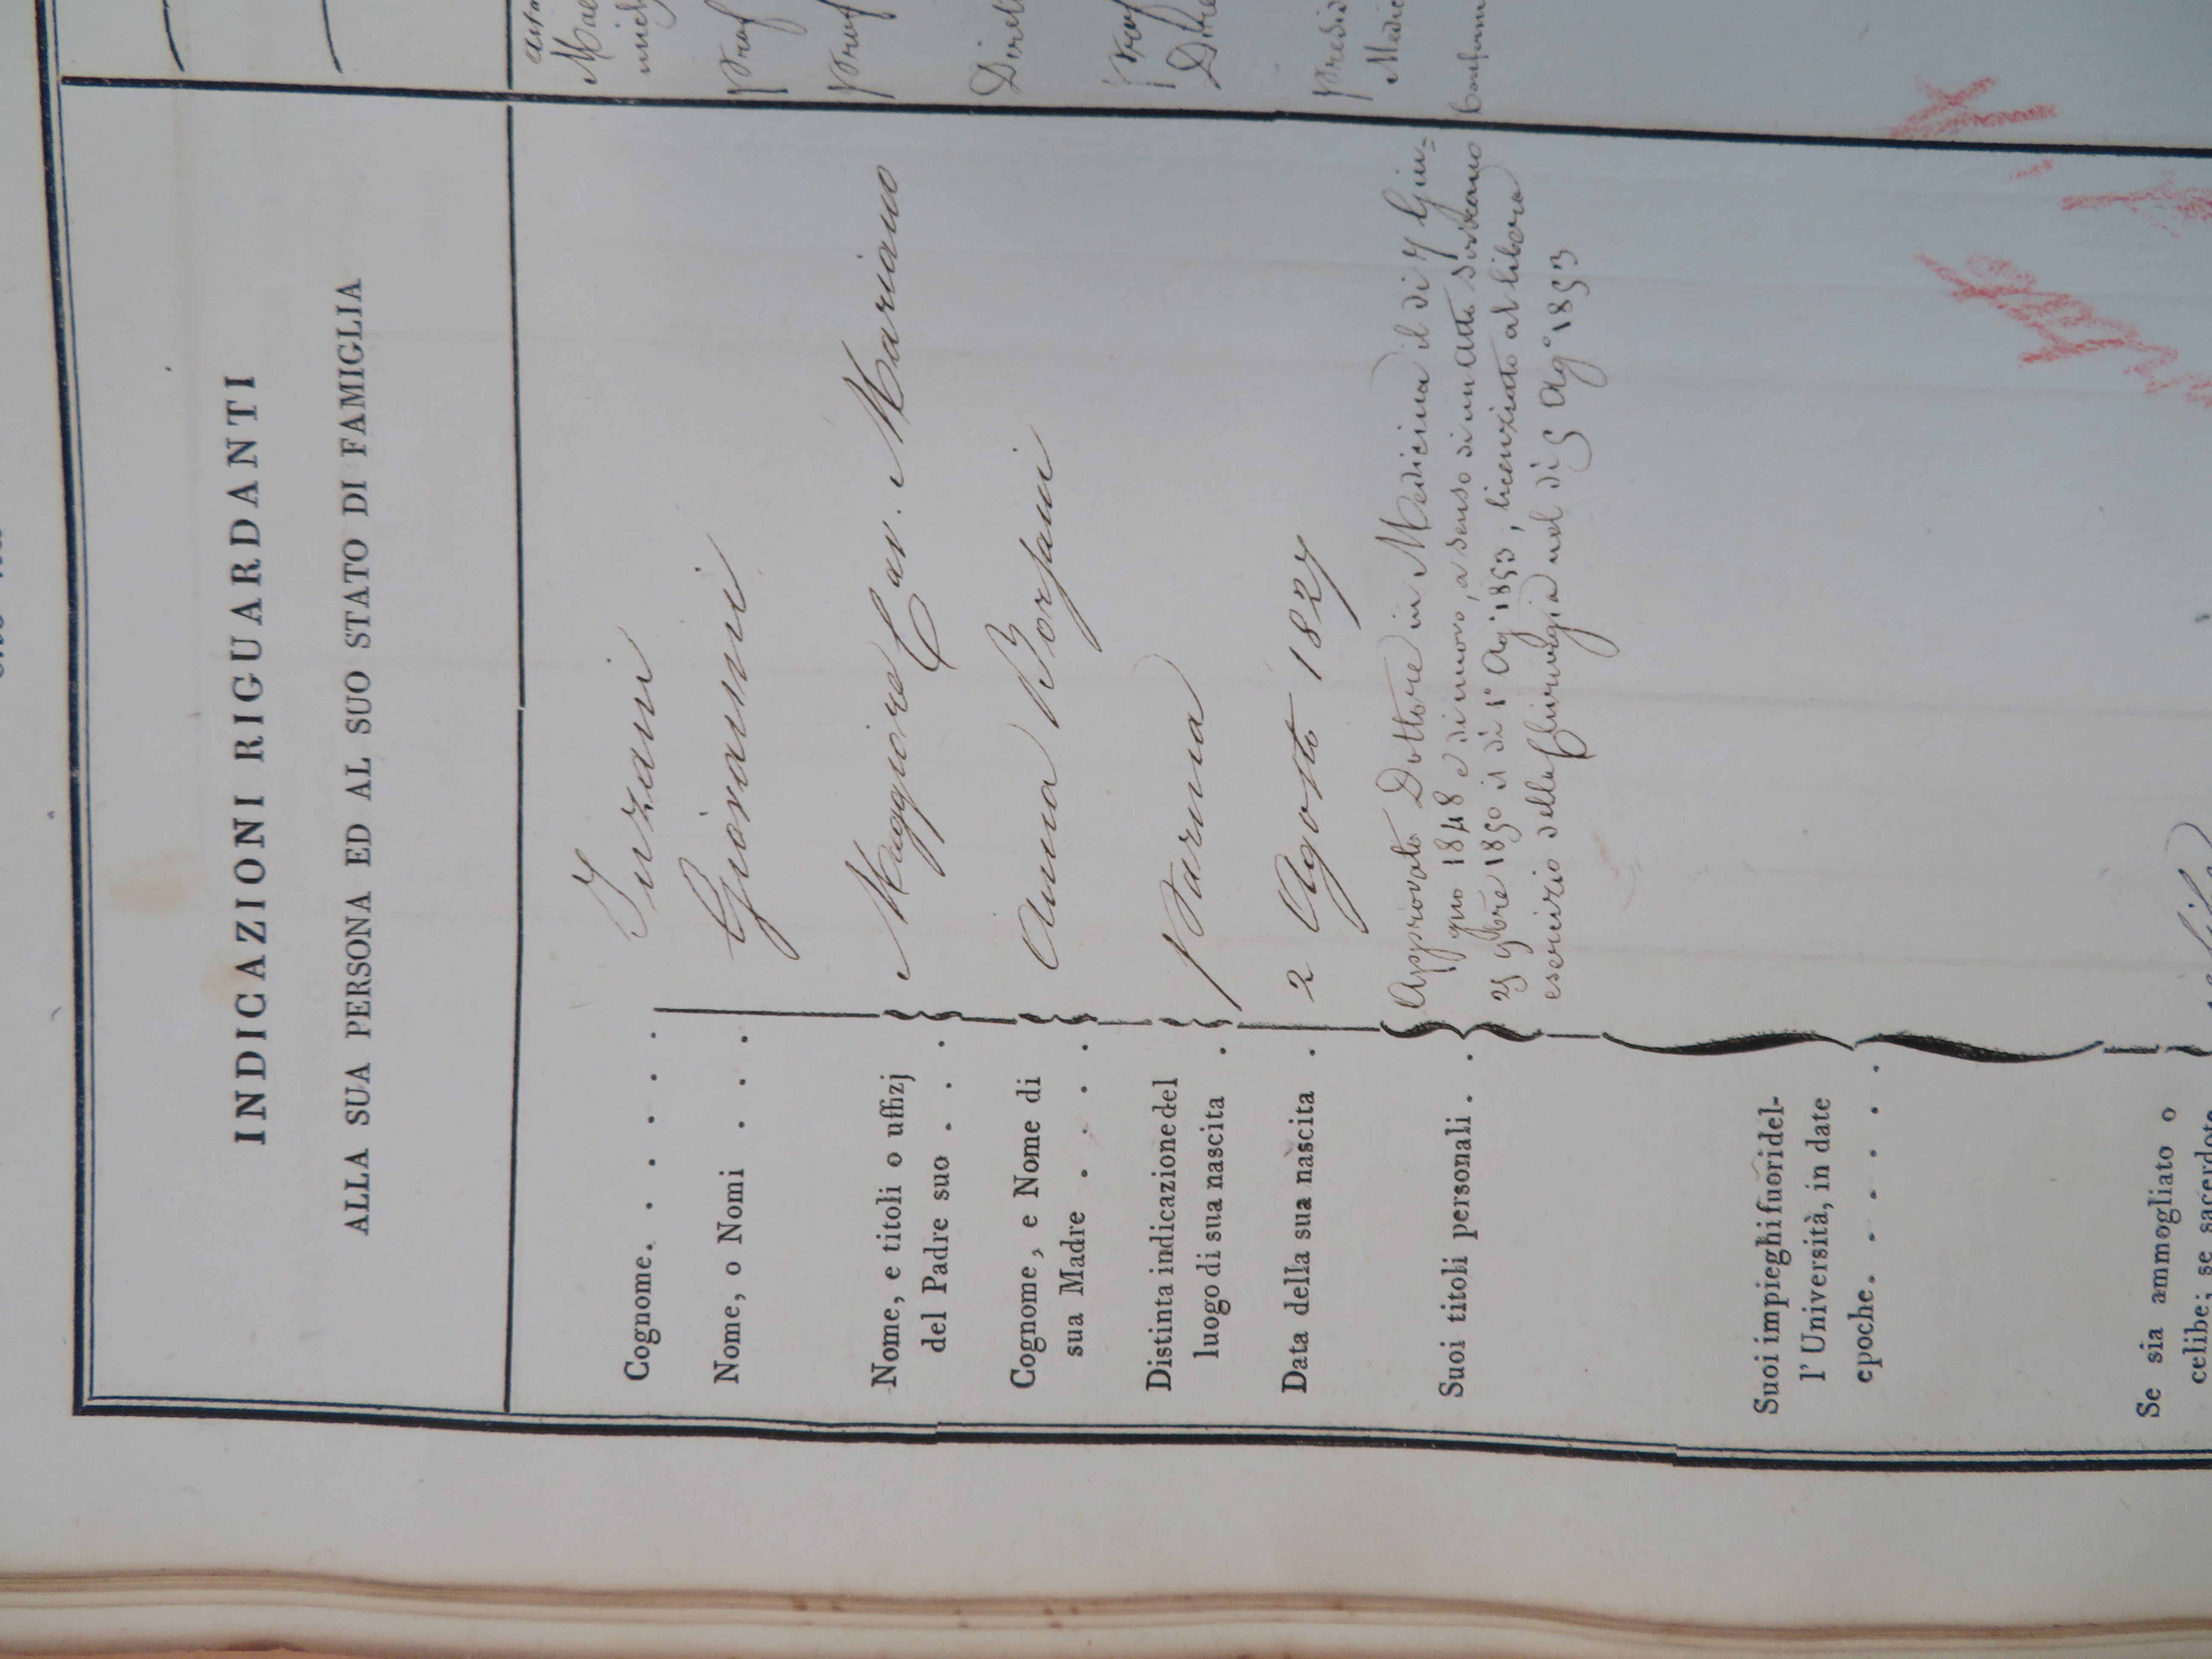 INDICAZIONI RIGUARDANTI
ALLA SUA PERSONA ED AL SUO STATO DI FAMIGLIA
Cognome. . . . . . Inzani
Nome, o Nomi . . . Giovanni
Nome, e titoli o uffizj
del Padre suo . . . Maggiore Cav. Mariano
Cognome, e Nome di
sua Madre . . . . Anna Borsani
Distinta indicazione del
luogo di sua nascita . Parma
Data della sua nascita . 2 Agosto 1827
Suoi titoli personali. . Approvato Dottore in Medicina il dì 7 Giu=
gno 1848 e di nuovo, a senso di un Atto Sovrano
25 9bre 1850 il dì 1° Ag° 1853; licenziato al libero
esercizio della Chirurgia nel dì 5 Ag° 1853
Suoi impieghi fuori del-
l' Università, in date
epoche. . . . . . .
Se sia ammogliato o
celibe; se sacerdote
Prof
Prof
Dirett
Prof
Presid
Medic